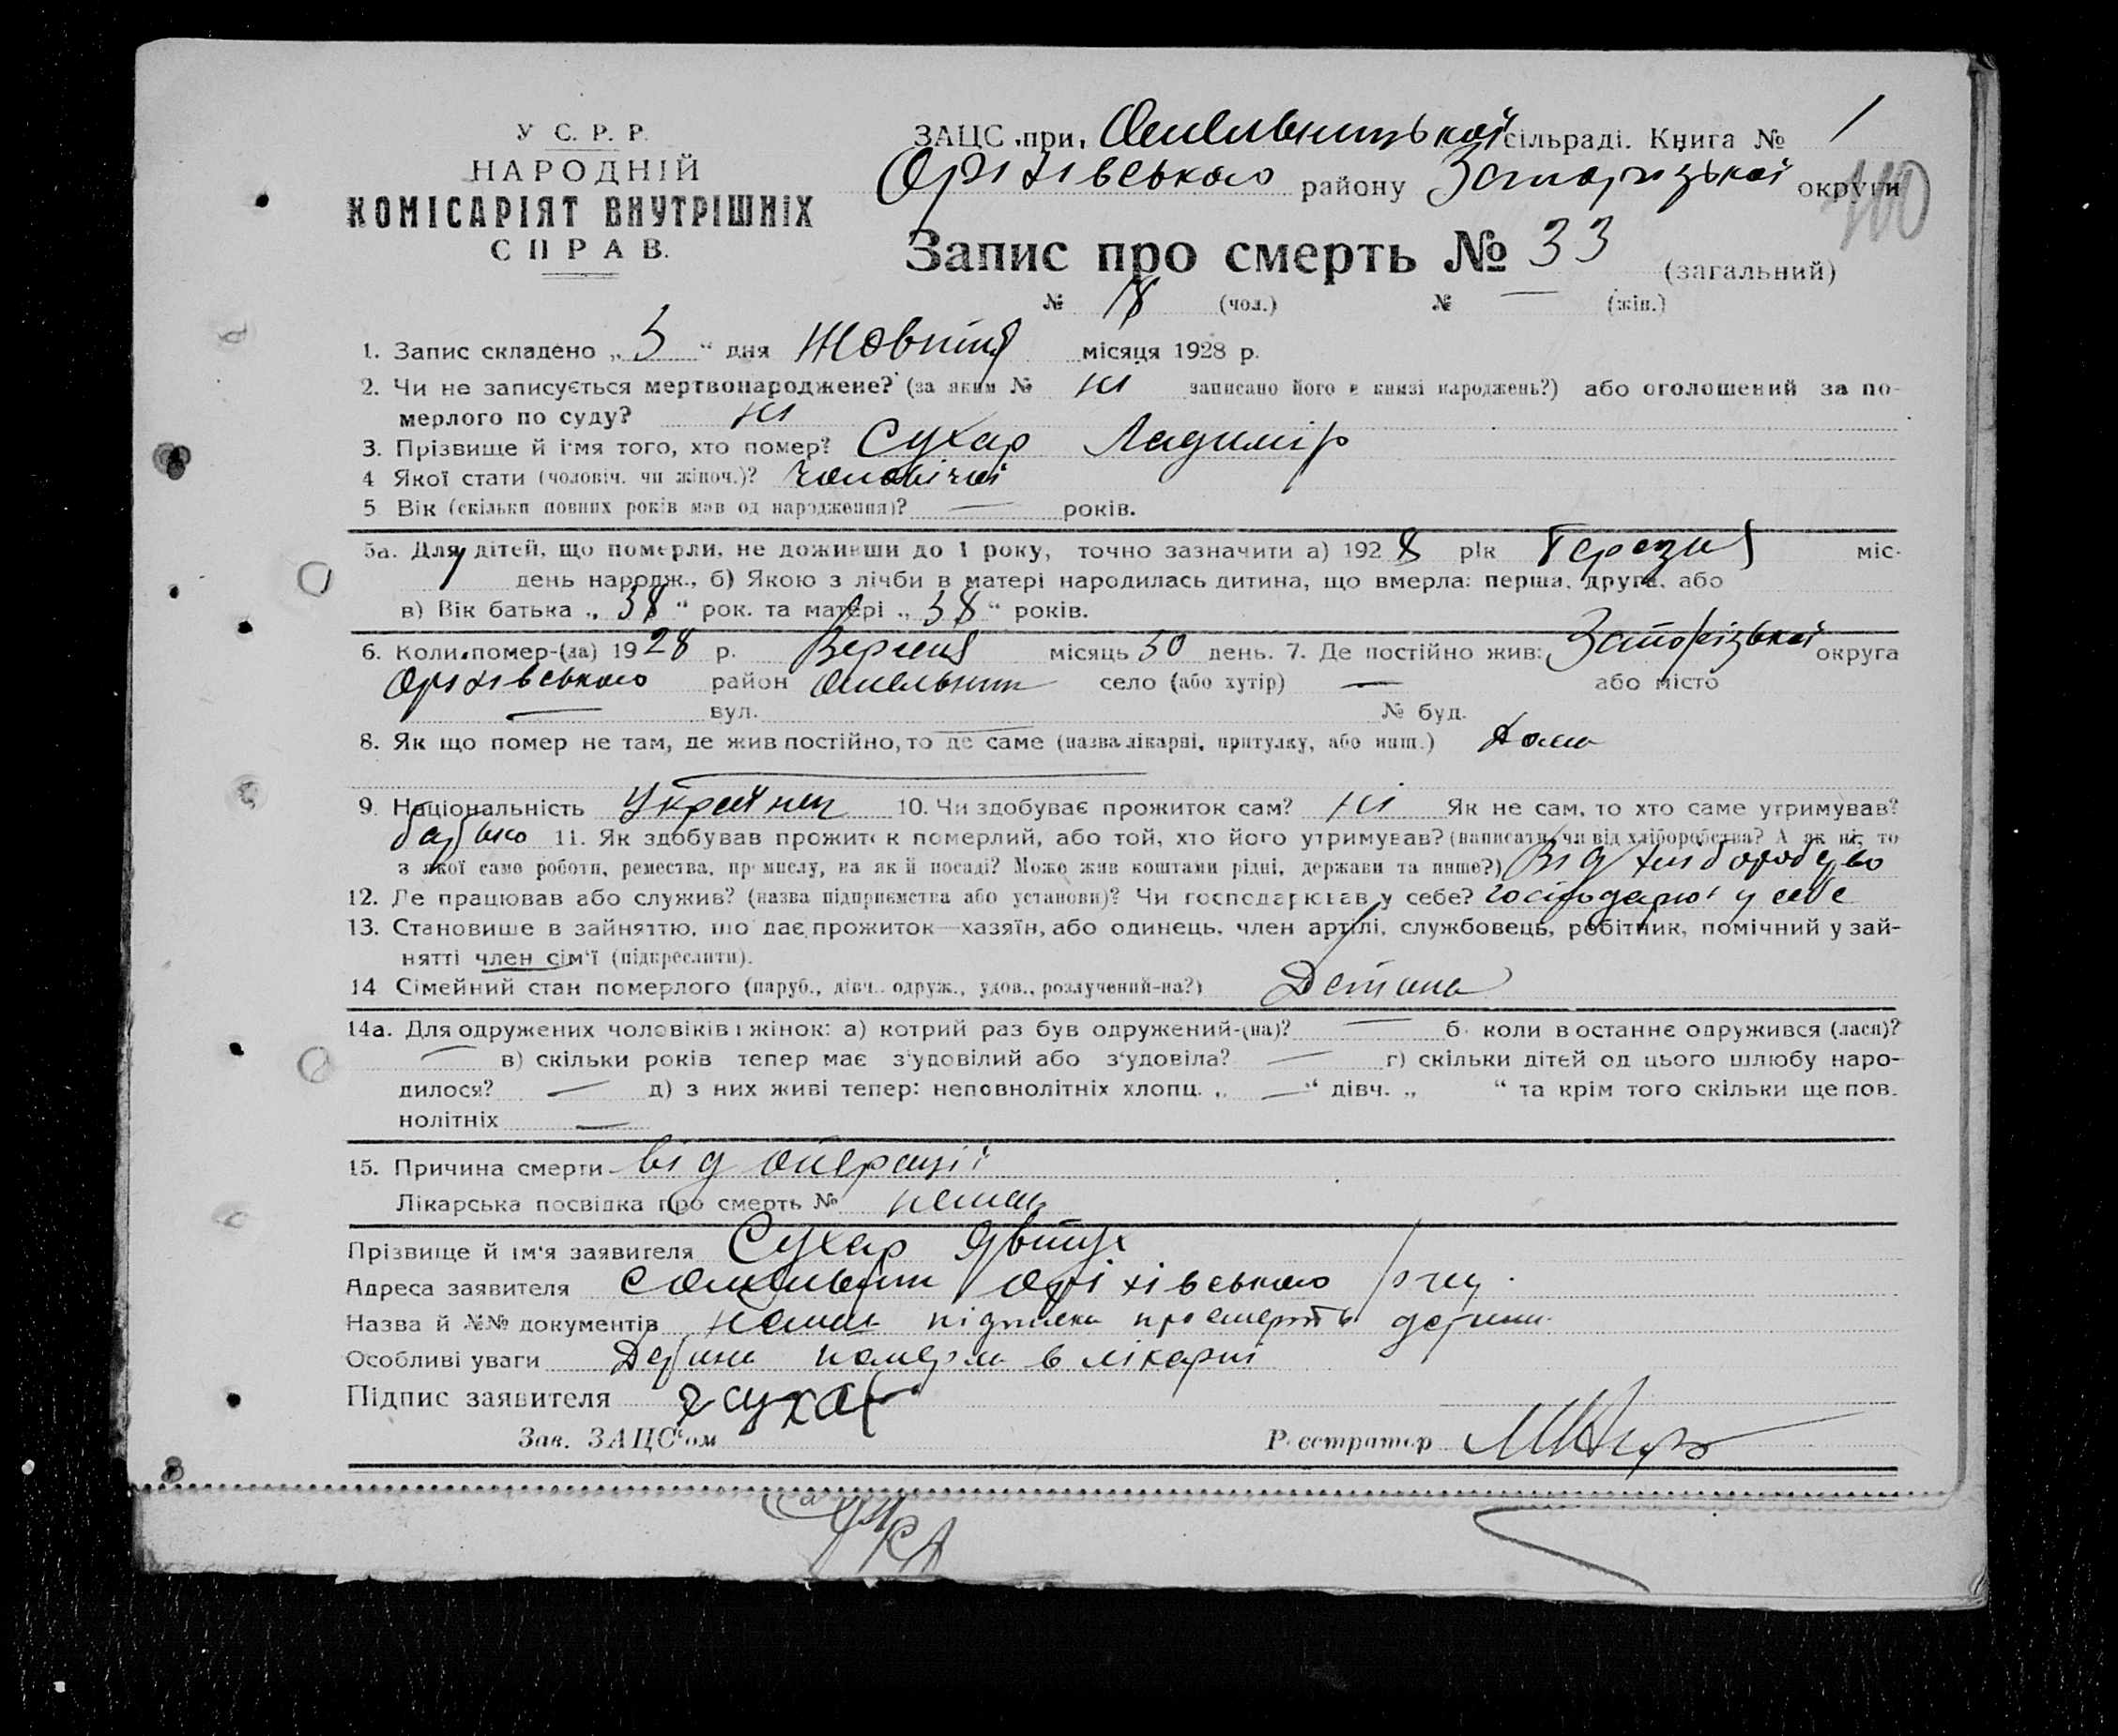 У С. Р. Р.
НАРОДНІЙ
КОМІСАРІЯТ ВНУТРІШНІХ
СПРАВ.
ЗАЦС при Омельницької сільраді. Книга № 1
Оріхівського району Запорізької округи
100
Запис про смерть № 33 (загальний)
№ 18 (чол.) № — (жін.)
1. Запис складено „ 3 “ дня Жовтня місяця 1928 р.
2. Чи не записується мертвонароджене? (за яким № ні записано його в книзі народжень?) або оголошений за по-
мерлого по суду? ні
3. Прізвище й ім'я того, хто помер? Сухар Ладимір
4 Якої стати (чоловіч. чи жіноч.)? чоловічої
5 Вік (скільки повних років мав од народження)? — років.
5а. Для дітей, що померли, не доживши до 1 року, точно зазначити а) 1928 рік Березня міс-
день народж., б) Якою з лічби в матері народилась дитина, що вмерла: перша, друга, або
в) Вік батька „ 38 “ рок. та матері „ 38 “ років.
6. Коли помер-(ла) 1928 р. Вересня місяць 30 день. 7. Де постійно жив: Запорізької округа
Оріхівського район Омельник село (або хутір) — або місто
— вул. № буд.
8. Як що помер не там, де жив постійно, то де саме (назва лікарні, притулку, або инш.) дома
9. Національність Українец 10. Чи здобуває прожиток сам? ні Як не сам, то хто саме утримував?
батько 11. Як здобував прожиток померлий, або той, хто його утримував? (написати, чи від хліборобства? А як ні, то
з якої саме роботи, ремества, промислу, на якій посаді? Може жив коштами рідні, держави та инше?) Від хліборобство
12. Де працював або служив? (назва підприємства або установи)? Чи господарював у себе? господарює у себе
13. Становище в зайняттю, що дає прожиток—хазяїн, або одинець, член артілі, службовець, робітник, помічний у зай-
нятті член сім'ї (підкреслити).
14 Сімейний стан померлого (паруб., дівч. одруж., удов., розлучений-на?) Детина
14а. Для одружених чоловіків і жінок: а) котрий раз був одружений-(на)? — б. коли в останнє одружився (лася)?
— в) скільки років тепер має з'удовілий або з'удовіла? — г) скільки дітей од цього шлюбу наро-
дилося? — д) з них живі тепер: неповнолітніх хлопц. „ — “ дівч. „ “ та крім того скільки ще пов.
нолітніх —
15. Причина смерти від операції
Лікарська посвідка про смерть № немає
Прізвище й ім'я заявителя Сухар Явтух
Адреса заявителя Оріхівського р-ну.
Назва й №№ документів немає про смерть детини
Особливі уваги Детина померла в лікарні
Підпис заявителя Я Сухар
Зав. ЗАЦС'ом Реєстратор